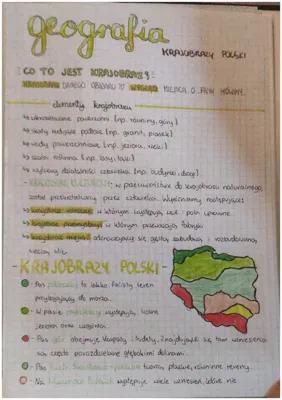 geografia
KRAJOBRAZY POLSKI
CO TO JEST KRAJOBRAZ?
KRAJOBRAZ DANEGO OBSZARU TO WYGLĄD MIEJSCA O JAKIM MÓWIMY.
elementy krajobrazu
↳ ukształtowanie powierzchni (np. równiny, góry)
↳ skały budujące podłoże (np. granit, piasek)
↳ wody powierzchniowe (np. jeziora, rzeki)
↳ szata roślinna (np. lasy, łąki)
↳ wytwory działalności człowieka (np. budynki, drogi)
- KRAJOBRAZ KULTUROWY: w przeciwieństwie do krajobrazu naturalnego,
został przekształcony przez człowieka. Wyróżniamy następujące:
↳ krajobraz wiejski w którym występują pola uprawne.
↳ krajobraz przemysłowy w którym przeważają fabryki
↳ krajobraz miejski gęstą zabudową i rozbudowaną
siecią
- KRAJOBRAZY POLSKI -
Pas pobrzeży to lekko falisty teren
przylegający do morza.
W pasie pojezierzy występują liczne
jeziora oraz wzgórza.
Pas gór obejmuje Karpaty i Sudety. Znajdujące się tam wzniesienia
są często porozdzielane głębokimi dolinami.
Pas Nizin Środkowopolskich tworzą płaskie, równinne tereny.
Na występuje wiele wzniesień, które nie